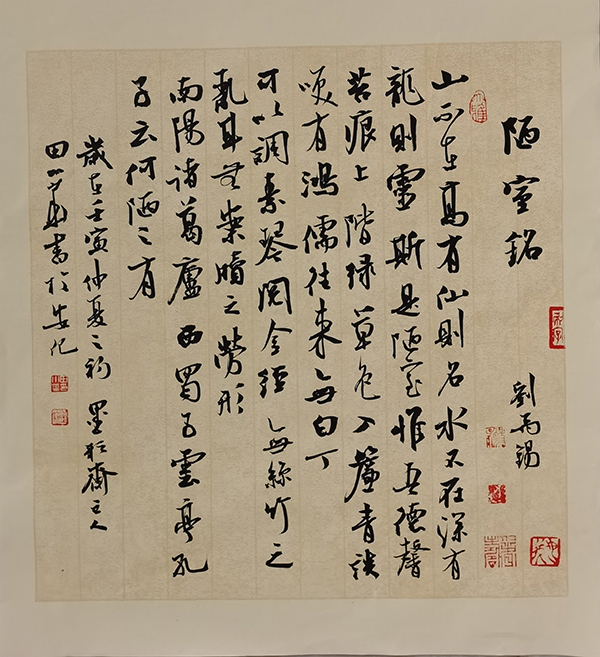 陋室銘
劉禹錫
山不在高有仙則名水不在深有
龍則靈斯是陋室惟吾德馨
苔痕上階绿草色入簾青談
笑有鴻儒往来無白丁
可以調素琴閱金經無絲竹之
亂耳無案牘之勞形
南陽諸葛廬西蜀子雲亭孔
子云何陋之有
歲在壬寅仲夏之初 墨 齋主人
書於安化